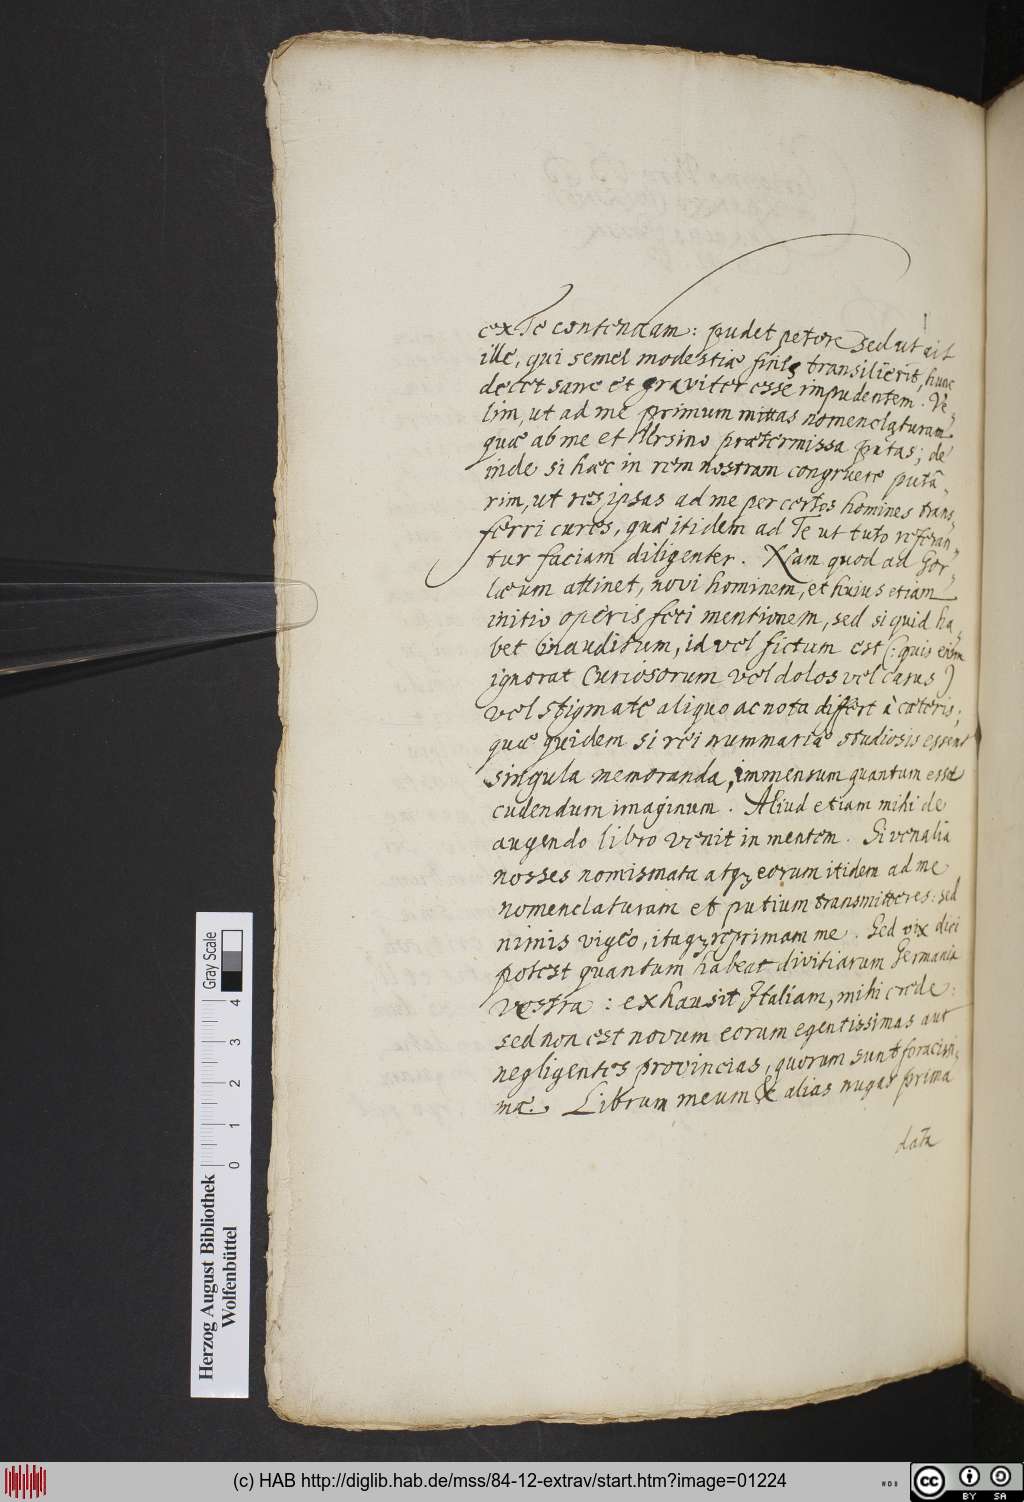 ex Te contendam: pudet petere sed ut ait
ille, qui semel modestiæ fines transilierit, hunc
decet sane et graviter esse impudentem. Ve-
lim, ut ad me primum mittas nomenclaturam
quæ ab me et Ursino prætermissa putas; de
inde si hæc in rem nostram congruere putā-
rim, ut res ipsas ad me per certos homines trans-
ferri cures, quæ itidem ad Te ut tuto referan-
tur faciam diligenter. Nam quod ad Gor-
læum attinet, novi hominem, et huius etiam
initio operis feci mentionem, sed si quid ha-
bet inauditum, id vel fictum est (: quis enim
ignorat Curiosorum vel dolos vel casus)
vel stigmate aliquo ac nota differt à cæteris;
quæ quidem si rei nummariæ studiosis essent
singula memoranda, immensum quantum esset
cudendum imaginum. Aliud etiam mihi de
augendo libro venit in mentem. Si venalia
nosses nomismata atqȝ eorum itidem ad me
nomenclaturam et putium transmitteres: sed
nimis vigeo, itaqȝ reprimam me. Sed vix dici
potest quantum habeat divitiarum Germania
vestra: exhausit Italiam, mihi crede:
sed non est novum eorum egentissimas aut
negligentes provincias, quorum sunt feracissi-
mæ. Librum meum & alias nugas prima
data
Herzog August Bibliothek
Wolfenbüttel
0 1 2 3 4
Gray Scale
(c) HAB http://diglib.hab.de/mss/84-12-extrav/start.htm?image=01224
cc BY SA